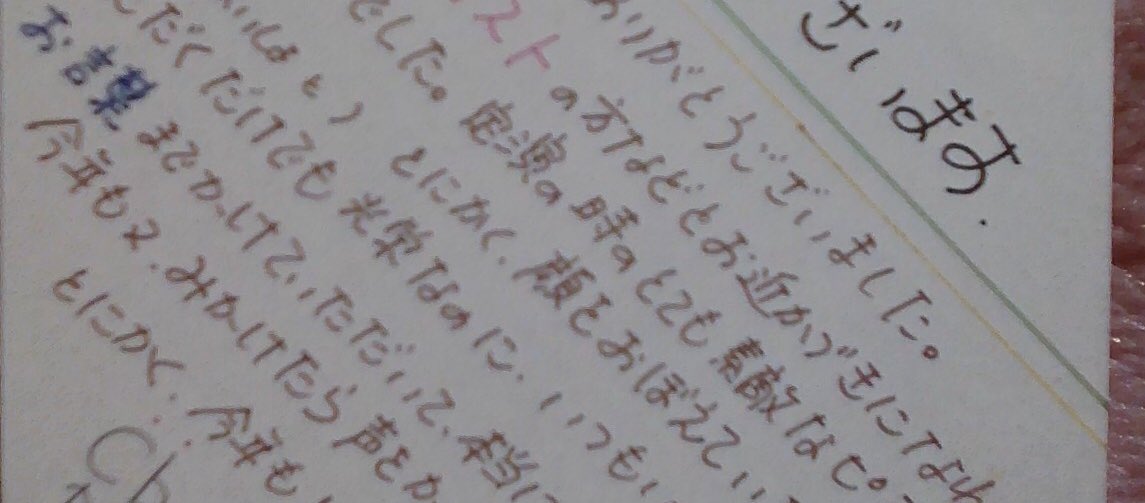 ざいます.
ありがとうございました。
ストの方などとお近づきになれ
でした。定演の時のとても素敵なピ
とにかく、顔をおぼえてい
ただくだけでも光栄なのに、いつも
お言葉までかけていただいて、本当に
今年も又、みかけたら声をか
とにかく、今年も